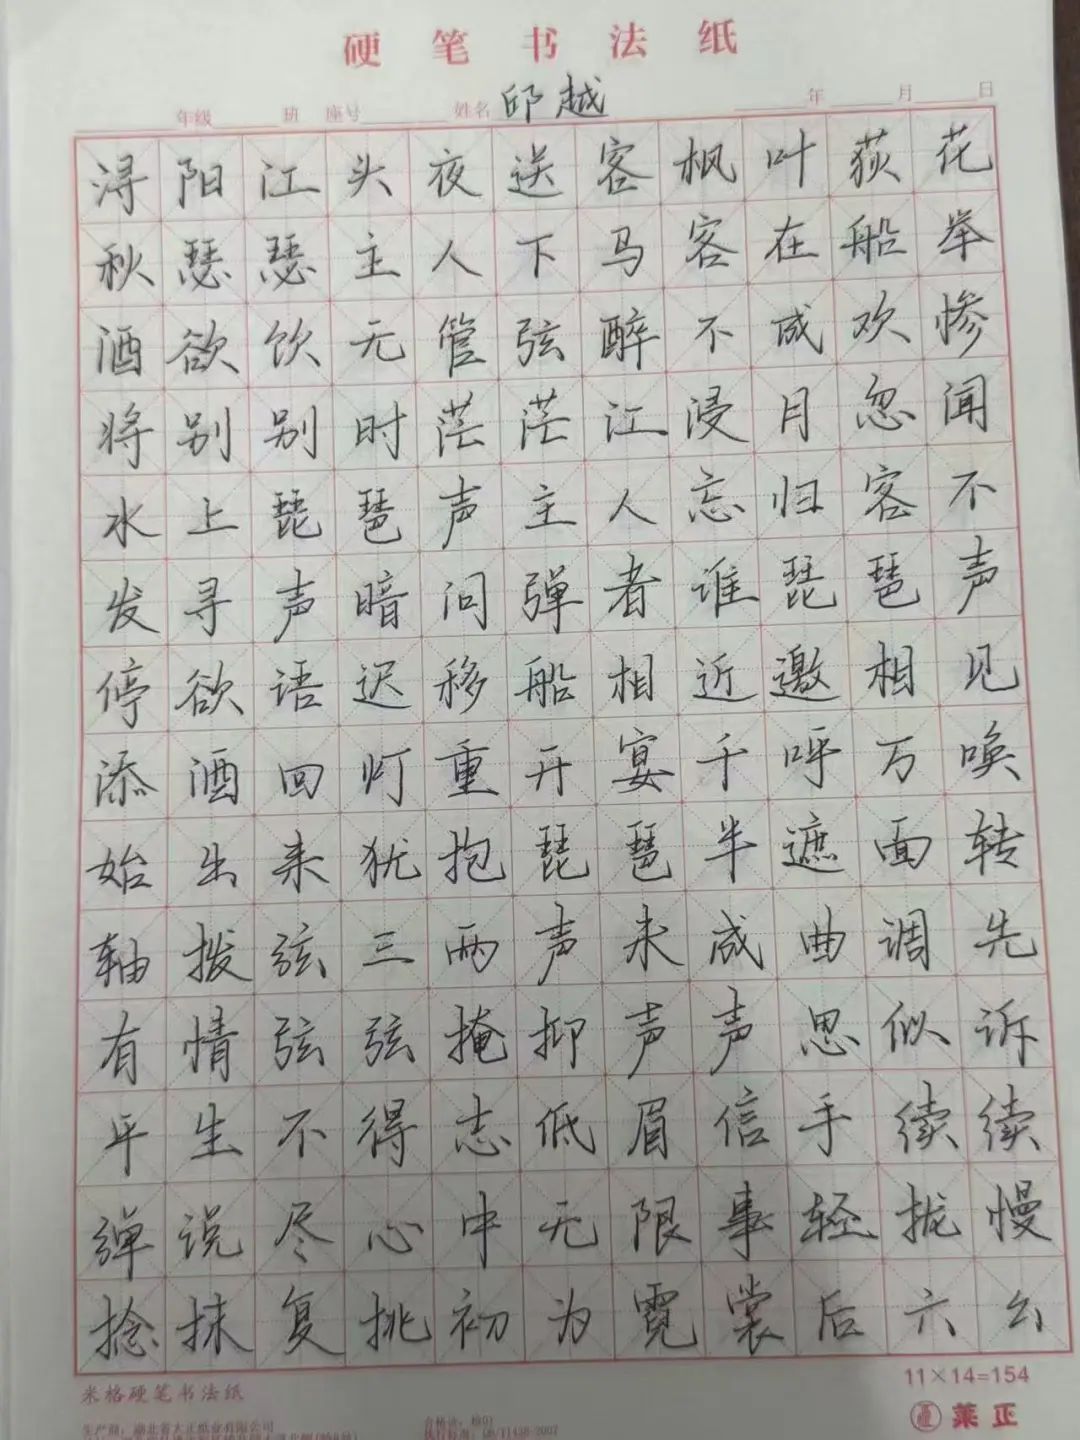 硬笔书法纸
年级 班 座号 姓名 邱越 年 月 日
浔阳江头夜送客枫叶荻花
秋瑟瑟主人下马客在船举
酒欲饮无管弦醉不成欢惨
将别别时茫茫江浸月忽闻
水上琵琶声主人忘归客不
发寻声暗问弹者谁琵琶声
停欲语迟移船相近邀相见
添酒回灯重开宴千呼万唤
始出来犹抱琵琶半遮面转
轴拨弦三两声未成曲调先
有情弦弦掩抑声声思似诉
平生不得志低眉信手续续
弹说尽心中无限事轻拢慢
捻抹复挑初为霓裳后六幺
米格硬笔书法纸
11×14=154
莱正
生产商：湖北省大正纸业有限公司